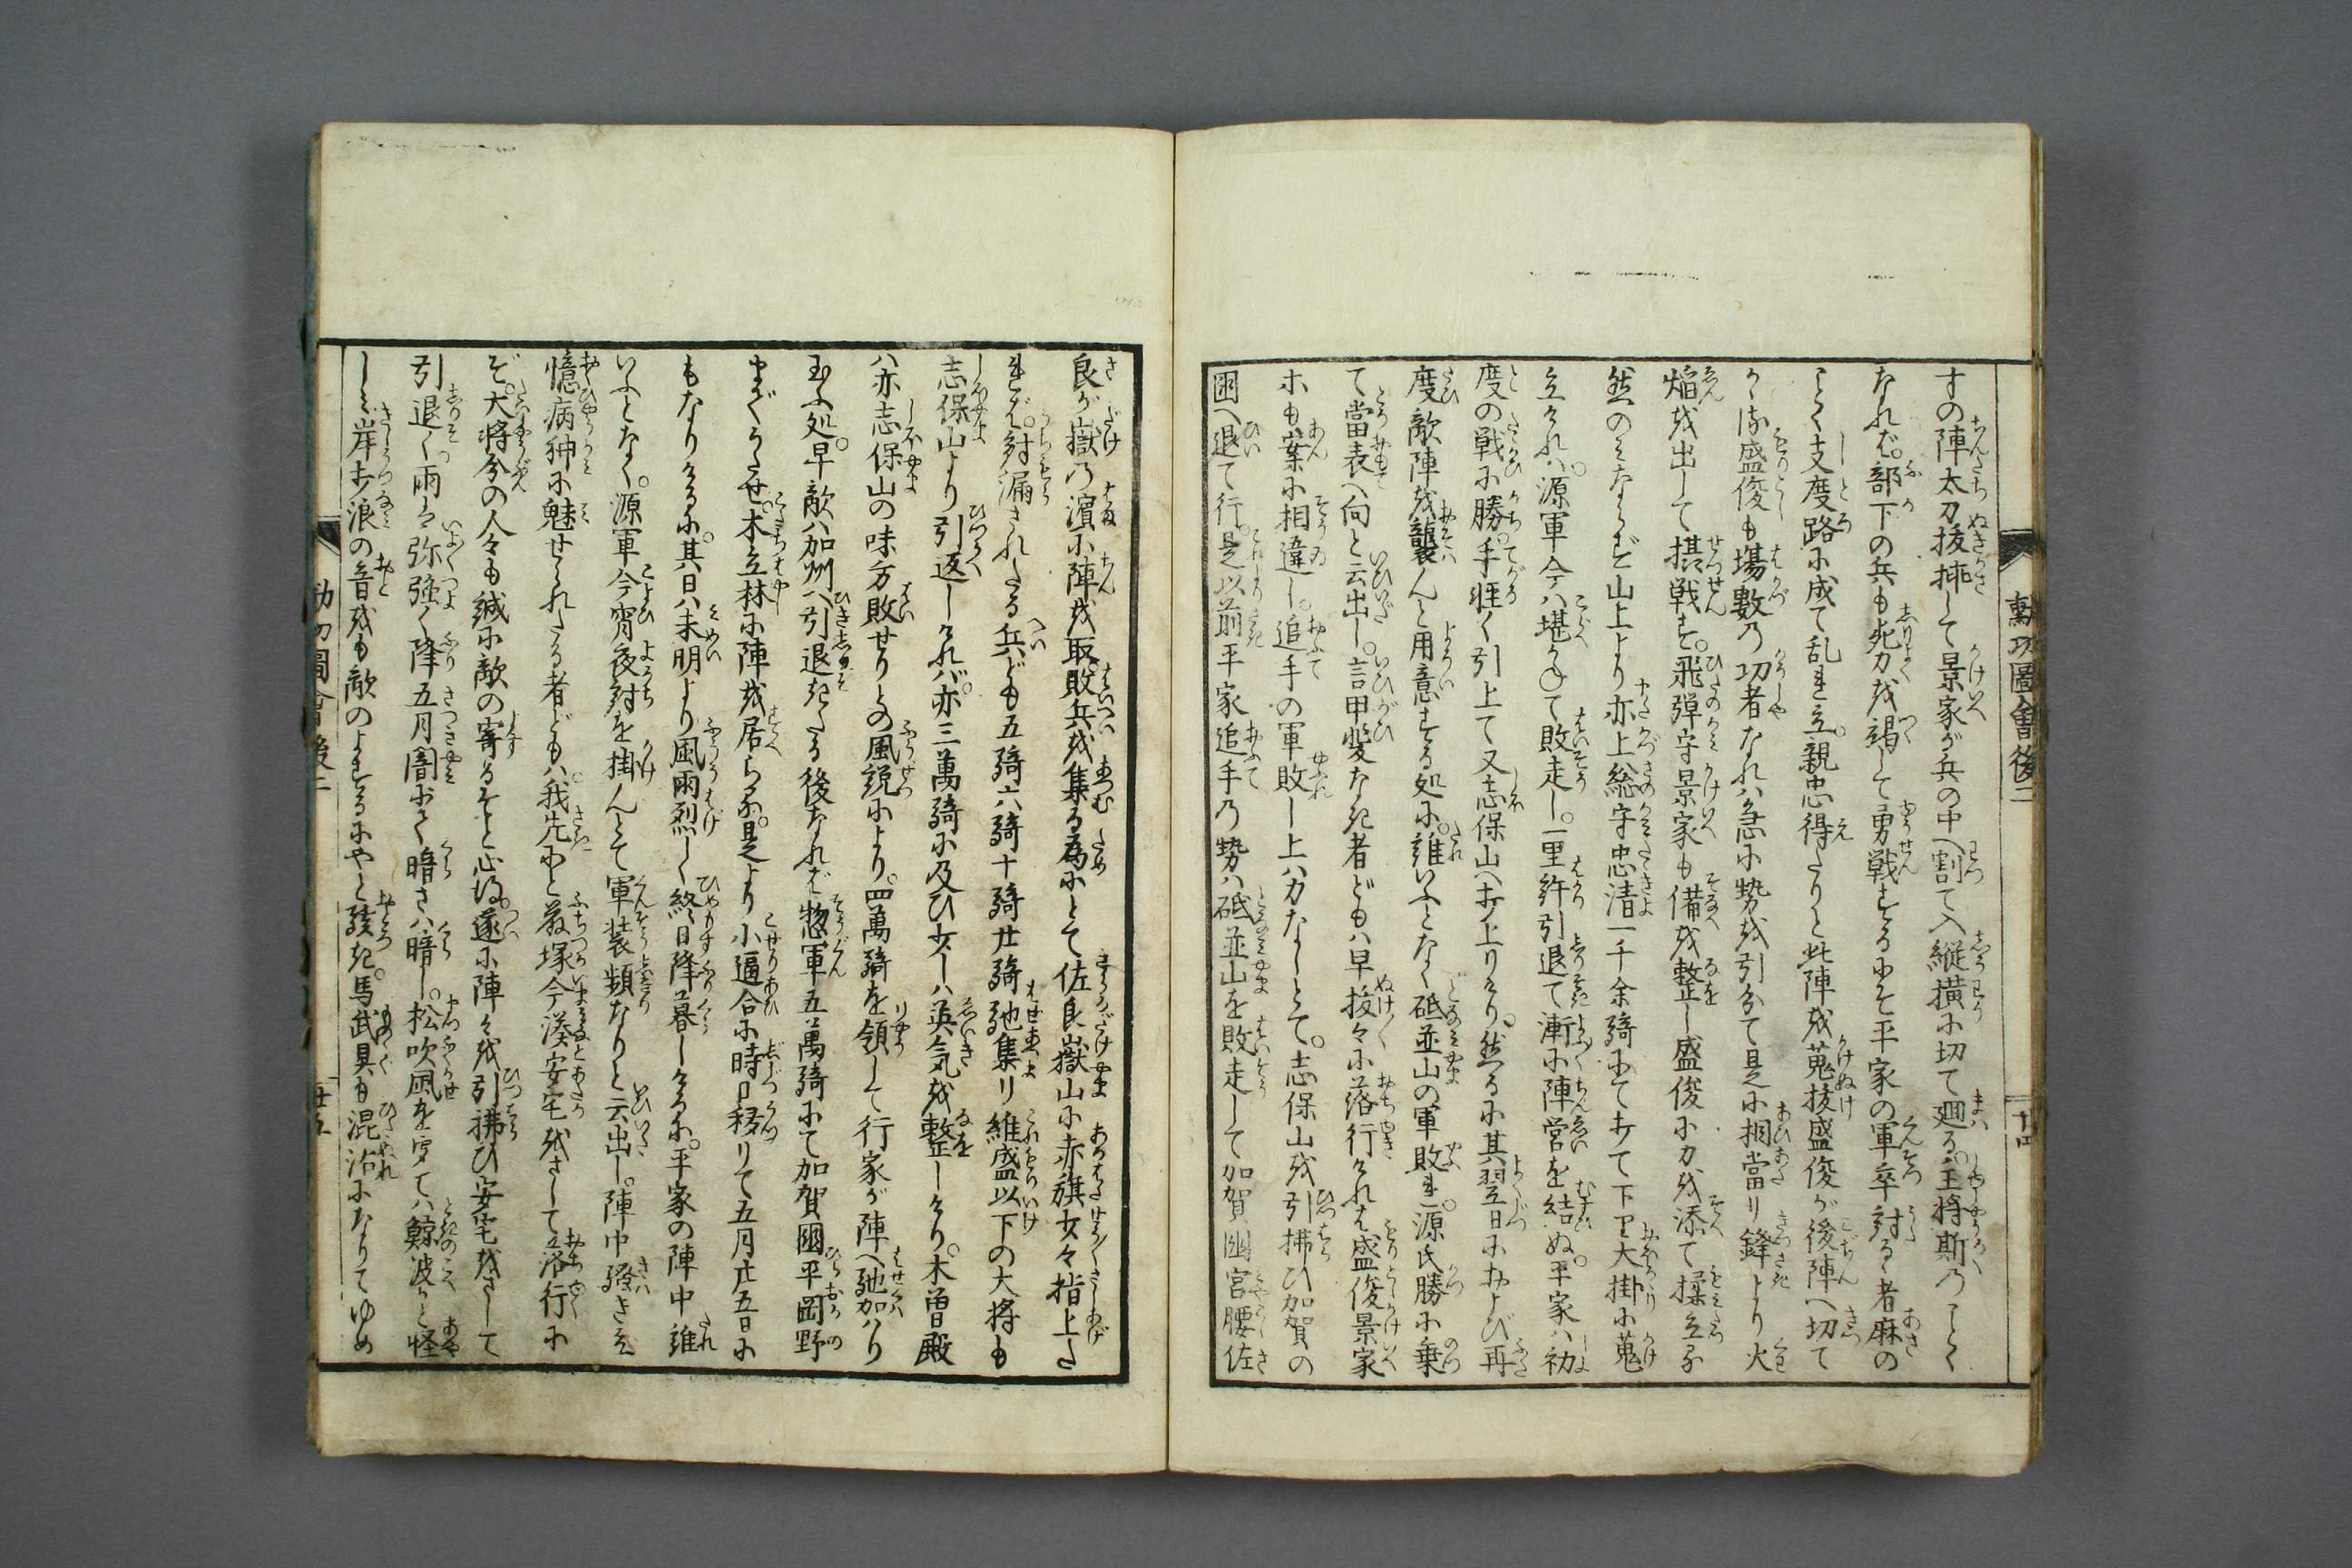 勲功圖會後二
十四
すの陣太刀抜挿して景家が兵の中へ割て入縦横に切て廻る主将斯のごとく
なれば。部下の兵も死力を竭して勇戦するにそ平家の軍卒討るゝ者麻の
ごとく支度路に成て乱れ立。親忠得たりと此陣を蒐抜盛俊が後陣へ切て
かゝる盛俊も場數の功者なれハ急に勢を引分て是に相當り鋒より火
焔を出して摂戦す。飛弾守景家も備を整し盛俊に力を添て揉立る
然のミならず山上より亦上総守忠清一千余騎にておて下り大掛に蒐
立けれハ。源軍今ハ堪かねて敗走し。一里許引退て漸に陣営を結ぬ。平家ハ初
度の戦に勝。手軽く引上て又志保山へ打上りけり。然るに其翌日におよび再
度敵陣を襲んと用意する処に。誰いふとなく砥並山の軍敗れ。源氏勝に乗
て當表へ向と云出し。言甲斐なき者どもハ早抜々に落行けれを盛俊景家
ホも案に相違し。追手の軍敗し上ハ力なしとて。志保山を引拂ひ加賀の
國へ退て行。是以前平家追手の勢ハ砥並山を敗走して加賀國宮腰佐
良が嶽の濱に陣を取敗兵を集る為にとて佐良嶽山に赤旗少々指上た
れバ。討漏されたる兵ども五騎六騎十騎廿騎馳集り維盛以下の大将も
志保山より引返しけれバ。亦三萬騎に及ひ少しハ英気を整しけり。木曽殿
ハ亦志保山の味方敗せりとの風説により。四萬騎を領して行家が陣へ馳加ハり
玉ふ処。早敵ハ加州へ引退きたる後なれば惣軍五萬騎にて加賀國平岡野
まぐうたせ。木立林に陣を居らる。是より小逼合に時日移りて五月廿五日に
もなりけるに。其日ハ未明より風雨烈しく終日降暮しけるに。平家の陣中誰
いふとなく。源軍今宵夜討を掛んとて軍装頻なりと云出し。陣中騒き立
憶病神に魅せられたる者どもハ。我先にと藤塚今湊安宅をさして落行に
ぞ。大将分の人々も誠に敵の寄るそと心得。遂に陣々を引拂ひ安宅をさして
引退く雨ハ弥強く降五月闇にて暗さハ暗し。松吹風を字てハ鯨波かと怪
しミ岸打浪の音をも敵のよするにやと驚き。馬武具も混沾になりてゆめ
勲功圖會後二
廿五